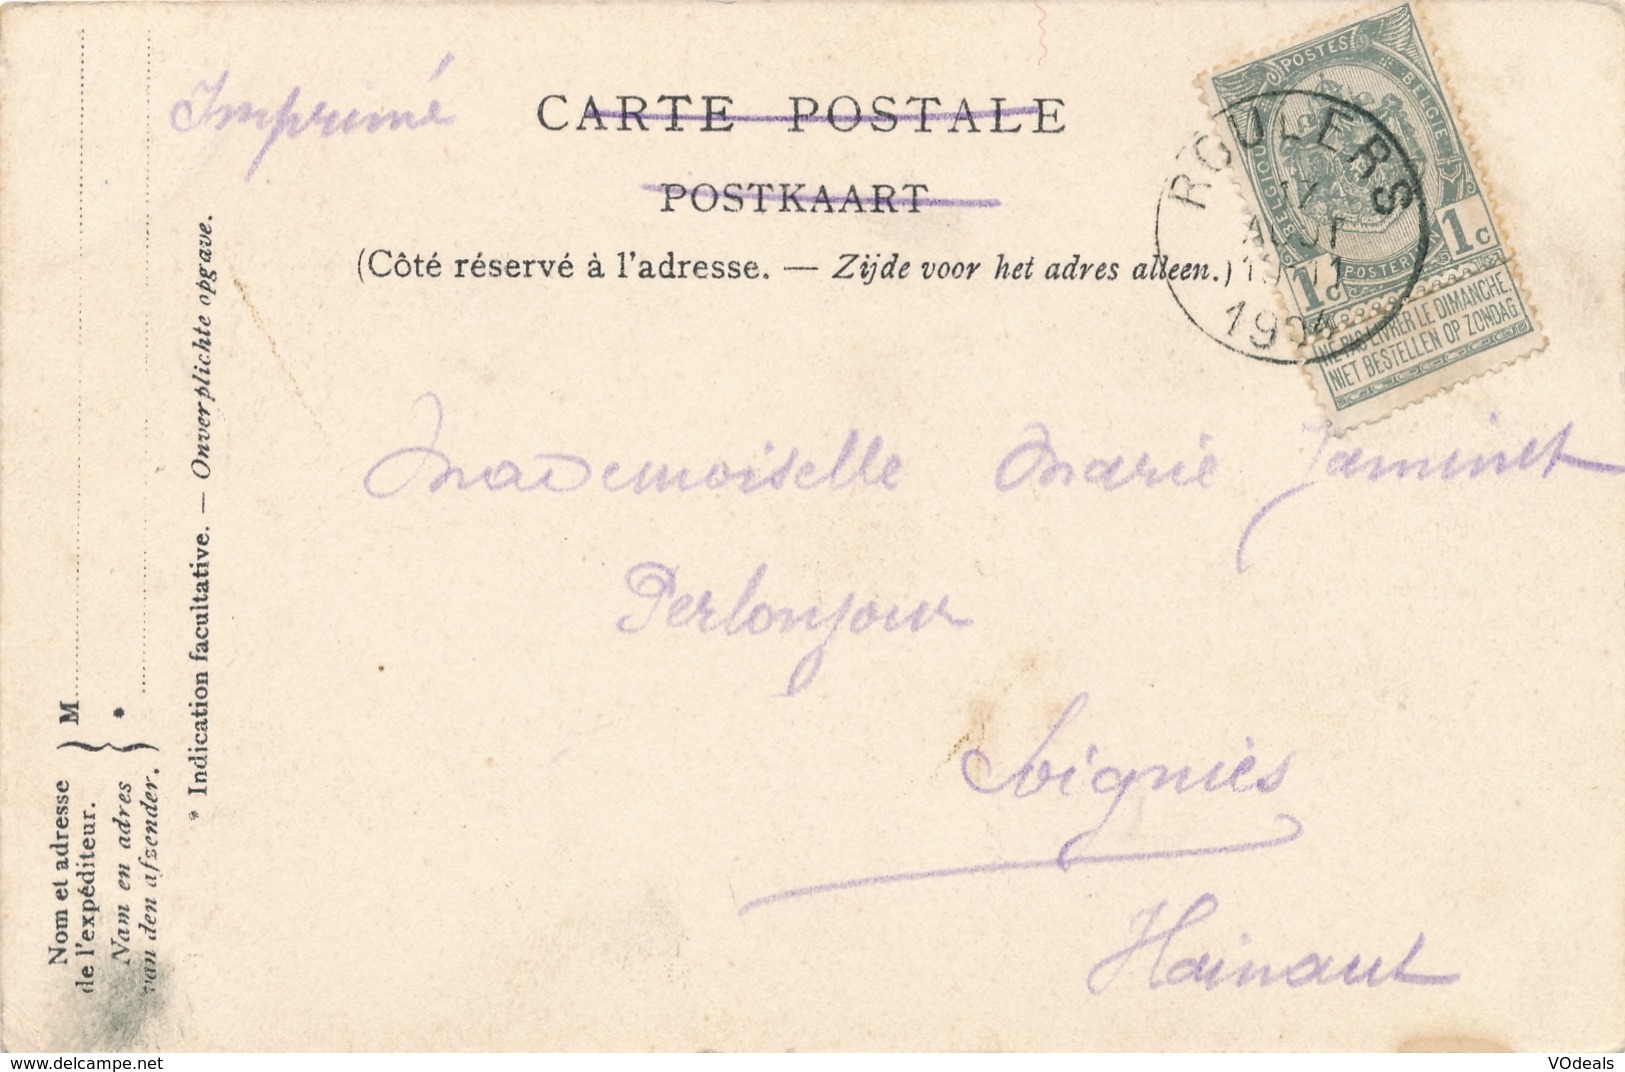 Imprimé
CARTE POSTALE
POSTKAART
(Côté réservé à l'adresse. — Zijde voor het adres alleen.)
POSTES BELGIE
BELGIQUE POSTERIJEN
1c 1c
NE PAS LIVRER LE DIMANCHE.
NIET BESTELLEN OP ZONDAG.
ROULERS
17
AOUT
1904
Mademoiselle Marie Jaminet
Perlonjour
Soignies
Hainaut
Nom et adresse
de l'expéditeur.
Nam en adres
van den afzender.
M
*
* Indication facultative. — Onverplichte opgave.
VOdeals